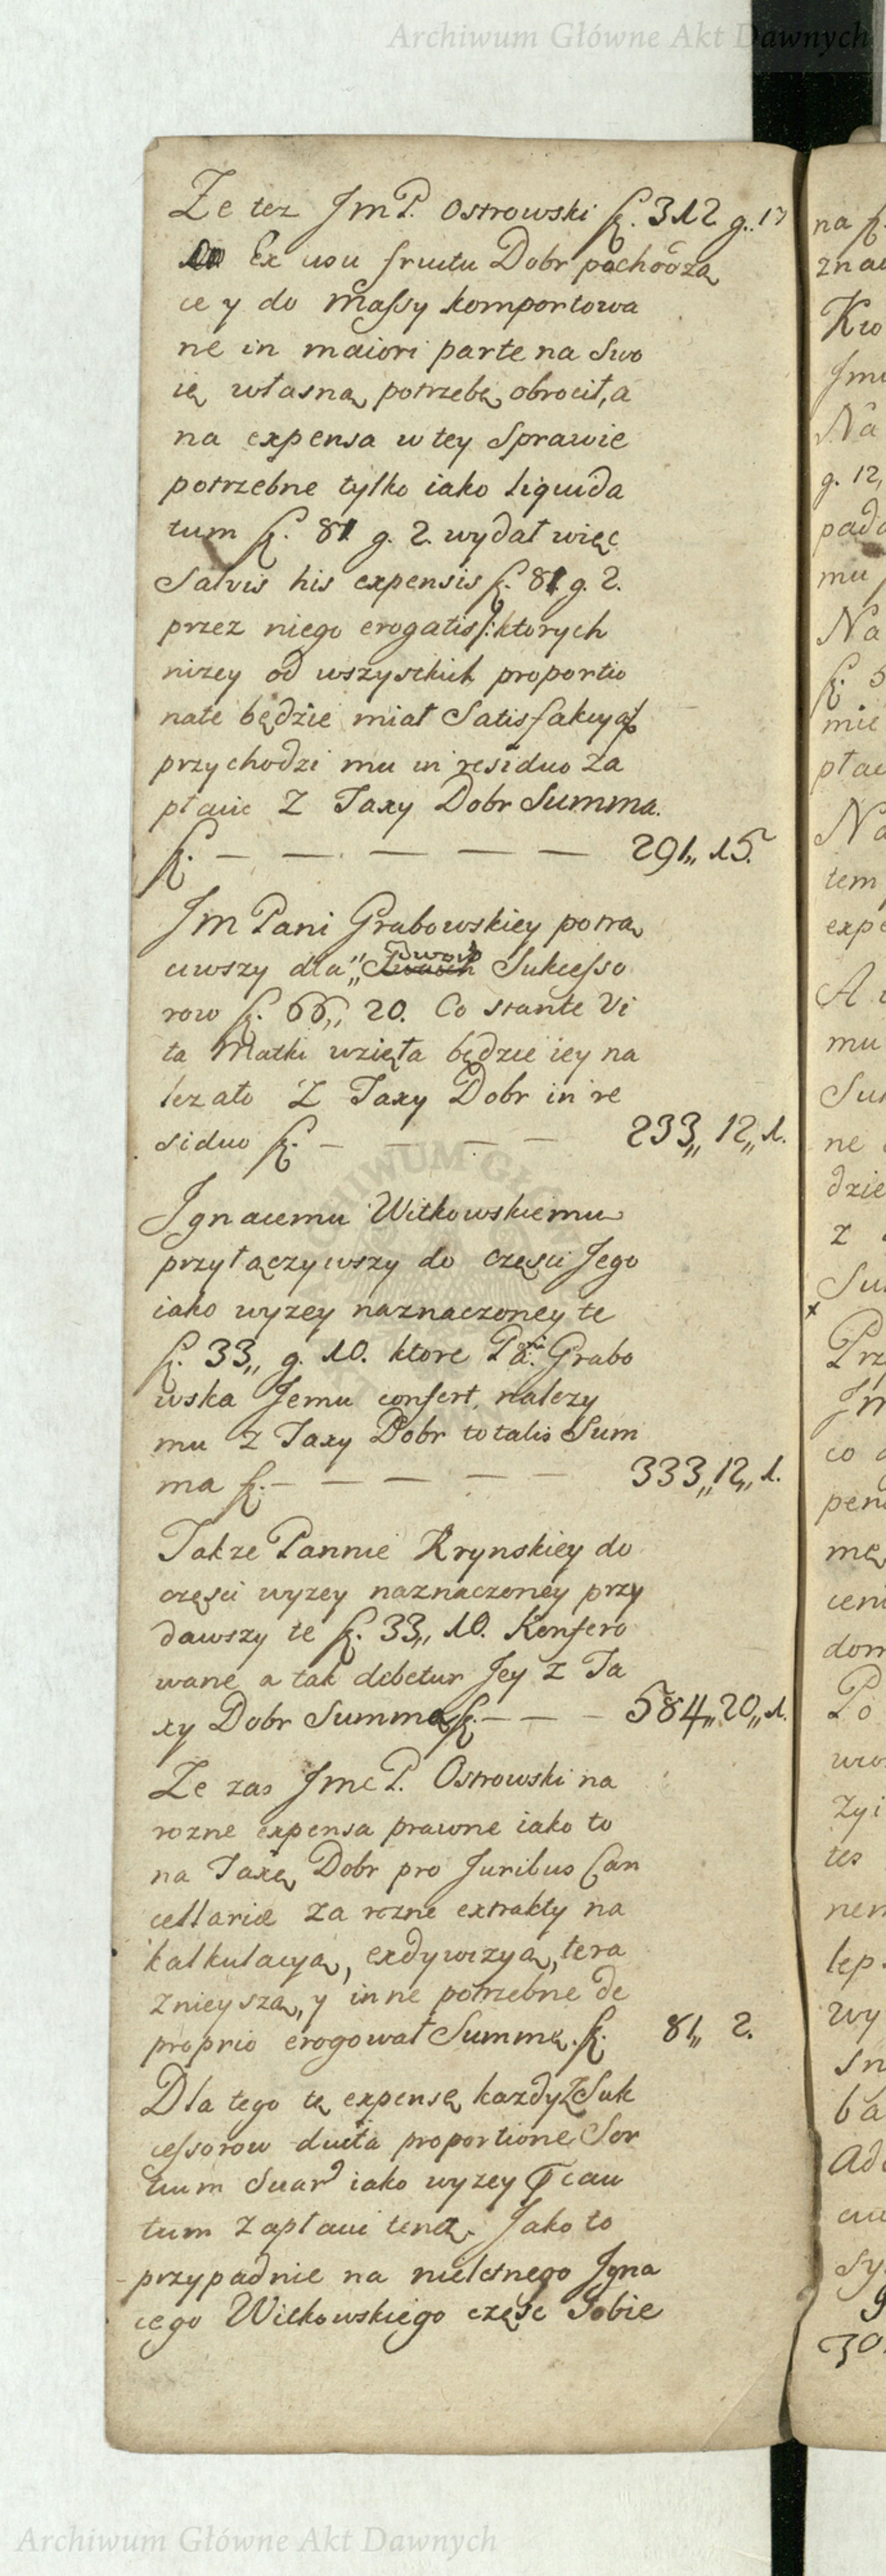 Archiwum Główne Akt Dawnych
Ze tez JmP. Ostrowski f. 312 g. 17
Ex usu fructu Dobr pochodzą
ce y do Massy komportowa
ne in maiori parte na Swo
ię własną potrzebę obrocił, a
na expensa w tey Sprawie
potrzebne tylko iako liquida
tum f. 81. g. 2. wydał więc
Salvis his expensis f. 81 g. 2.
przez niego erogatis /: ktorych
nizey od wszystkich proportio
nate będzie miał Satisfakcyą :/
przychodzi mu in residuo Za
płacic Z Taxy Dobr Summa.
f. — — — — — 291,, 15.
Jm Pani Grabowskiey potrą
ciwszy dla,, Swoich Sukcesso
row f. 66,, 20. Co stante Vi
ta Matki wzięta będzie iey na
lezało Z Taxy Dobr in re
siduo f. — — — — 233,, 12,, 1.
Ignacemu Witkowskiemu
przyłączywszy do częsci Jego
iako wyzey naznaczoney te
f. 33,, g. 10. ktore Pa: Grabo
wska Jemu confert, nalezy
mu Z Taxy Dobr totalis Sum
ma f. — — — — — 333,, 12,, 1.
Takze Pannie Krynskiey do
częsci wyzey naznaczoney przy
dawszy te f. 33,, 10. Konfero
wane a tak debetur Jey z Ta
xy Dobr Summa f. — — — 584,, 20,, 1.
Ze zas JmcP. Ostrowski na
rozne expensa prawne iako to
na Taxę Dobr pro Juribus Can
cellariæ za rozne extrakty na
kalkulacyą, exdywizyą, tera
znieyszą, y inne potrzebne de
proprio erogował Summę. f. 81,, 2.
Dla tego tę expensę kazdy z Suk
cessorow ducta proportione Sor
tium Suar iako wyzey cau
tum zapłaci tenez. Jako to
przypadnie na nieletnego Igna
cego Witkowskiego częsc Sobie
Archiwum Główne Akt Dawnych